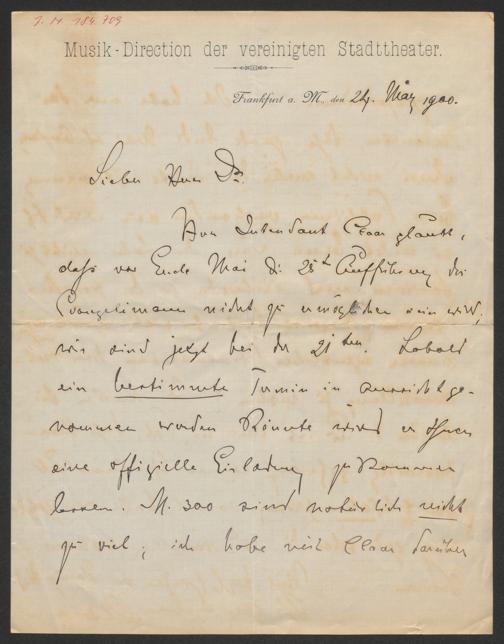 I. N. 184.709
Musik-Direction der vereinigten Stadttheater.
Frankfurt a. M., den 24. März 1900.
Lieber Herr Dr.
Herr Intendant Claar glaubt,
daß vor Ende Mai die 25te Aufführung des
Evangelimann nicht zu ermöglichen sein wird;
wir sind jetzt bei der 21ten. Sobald
ein bestimmter Termin in Aussicht ge-
nommen werden könnte wird er Ihnen
eine offizielle Einladung zukommen
lassen. M. 300 sind natürlich nicht
zu viel; ich habe mit Claar darüber